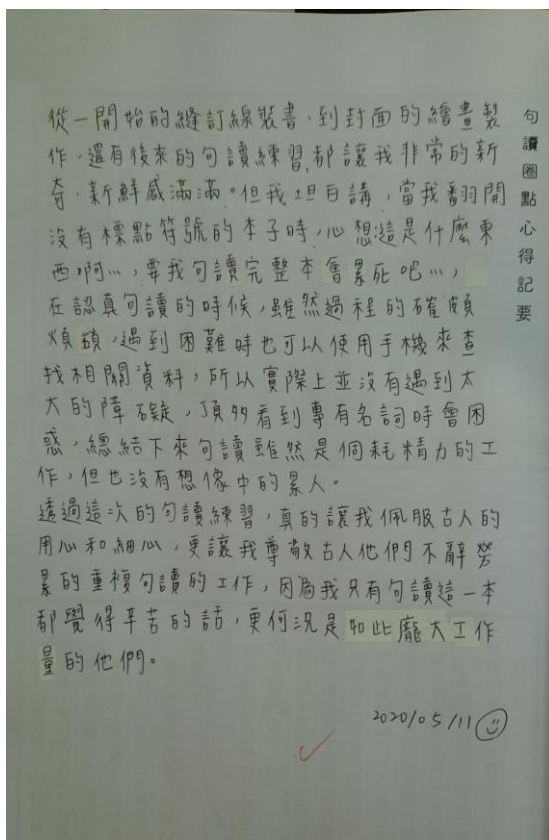 句讀圈點心得記要
從一開始的縫訂線裝書、到封面的繪畫製
作,還有後來的句讀練習,都讓我非常的新
奇、新鮮感滿滿。但我坦白講,當我翻開
沒有標點符號的本子時,心想這是什麼東
西啊…,要我句讀完整本會累死吧…,
在認真句讀的時候,雖然過程的確頗
煩碩,遇到困難時也可以使用手機來查
找相關資料,所以實際上並沒有遇到太
大的障礙,頂多看到專有名詞時會困
惑,總結下來句讀雖然是個耗精力的工
作,但也沒有想像中的累人。
透過這次的句讀練習,真的讓我佩服古人的
用心和細心,更讓我尊敬古人他們不辭勞
累的重複句讀的工作,因為我只有句讀這一本
都覺得辛苦的話,更何況是如此龐大工作
量的他們。
2020/05/11